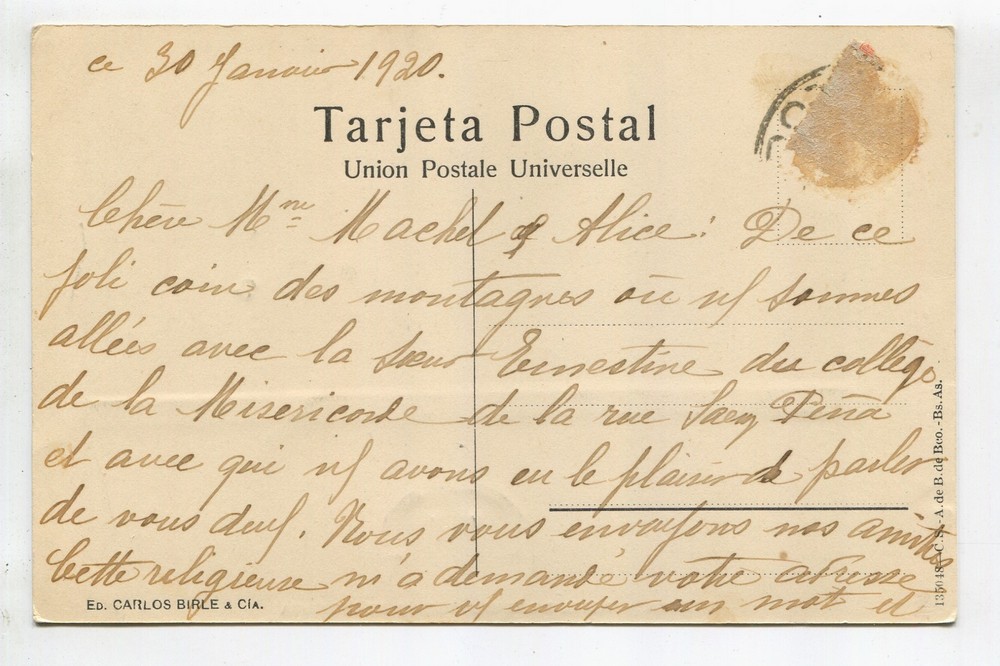 ce 30 Janvier 1920.
Tarjeta Postal
Union Postale Universelle
Chère Mme Machel & Alice: De ce
joli coin des montagnes où ns sommes
allées avec la sœur Ernestine du collège
de la Misericorde de la rue Saenz Peña
et avec qui ns avons eu le plaisir de parler
de vous deux. Nous vous envoyons nos amitiés
Cette religieuse m'a demandé votre adresse
pour vs envoyer un mot et
ED. CARLOS BIRLE & CÍA.
135048–C.S.-A. de B. de Bco.-Bs. As.